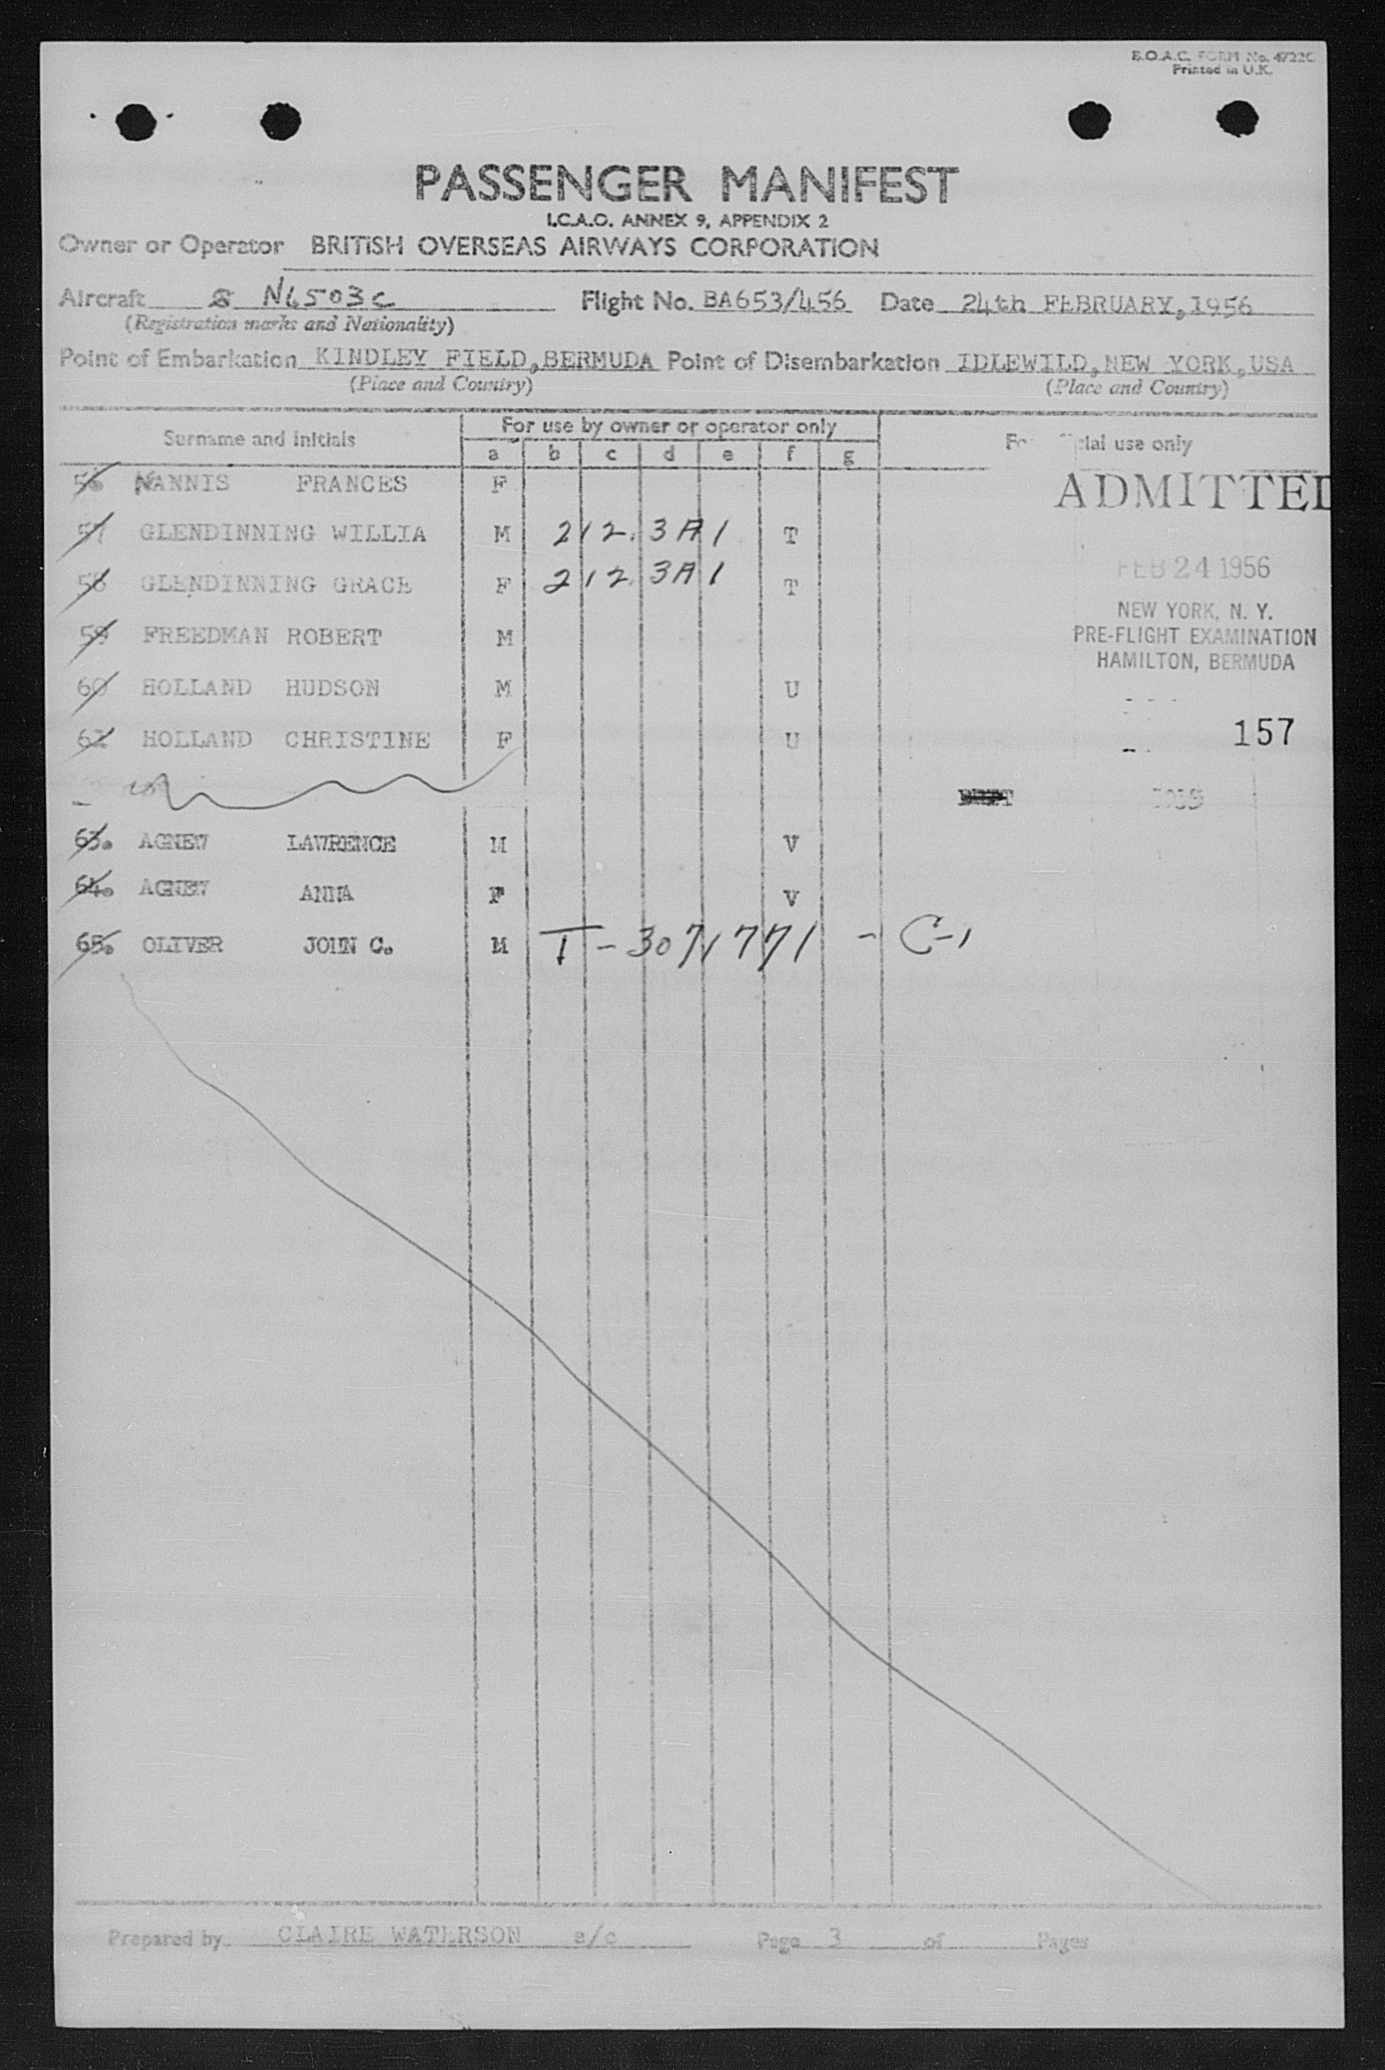 B.O.A.C. FORM No. 4722C
Printed in U.K.
PASSENGER MANIFEST
I.C.A.O. ANNEX 9, APPENDIX 2
Owner or Operator BRITISH OVERSEAS AIRWAYS CORPORATION
Aircraft N6503C Flight No. BA653/456 Date 24th FEBRUARY, 1956
(Registration marks and Nationality)
Point of Embarkation KINDLEY FIELD, BERMUDA Point of Disembarkation IDLEWILD, NEW YORK, USA
(Place and Country) (Place and Country)
Surname and initials For use by owner or operator only use only
a b c d e f g
56 NANNIS FRANCES F
ADMITTED
57 GLENDINNING WILLIA M 212.3A1 T
FEB 24 1956
58 GLENDINNING GRACE F 212.3A1 T
NEW YORK, N. Y.
59 FREEDMAN ROBERT M
PRE-FLIGHT EXAMINATION
HAMILTON, BERMUDA
60 HOLLAND HUDSON M U
61 HOLLAND CHRISTINE F U
157
63. AGNEW LAWRENCE M V
64. AGNEW ANNA F V
65. OLIVER JOHN C. M T-3071771 - C-1
Prepared by CLAIRE WATERSON a/c Page 3 of Pages